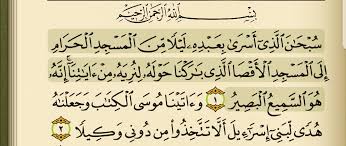 بِسْمِ اللَّهِ الرَّحْمَٰنِ الرَّحِيمِ
سُبْحَانَ الَّذِي أَسْرَىٰ بِعَبْدِهِ لَيْلًا مِّنَ الْمَسْجِدِ الْحَرَامِ
إِلَى الْمَسْجِدِ الْأَقْصَا الَّذِي بَارَكْنَا حَوْلَهُ لِنُرِيَهُ مِنْ آيَاتِنَا إِنَّهُ
هُوَ السَّمِيعُ الْبَصِيرُ ١ وَءَاتَيْنَا مُوسَى الْكِتَابَ وَجَعَلْنَاهُ
هُدًى لِّبَنِي إِسْرَاءِيلَ أَلَّا تَتَّخِذُوا مِن دُونِي وَكِيلًا ٢